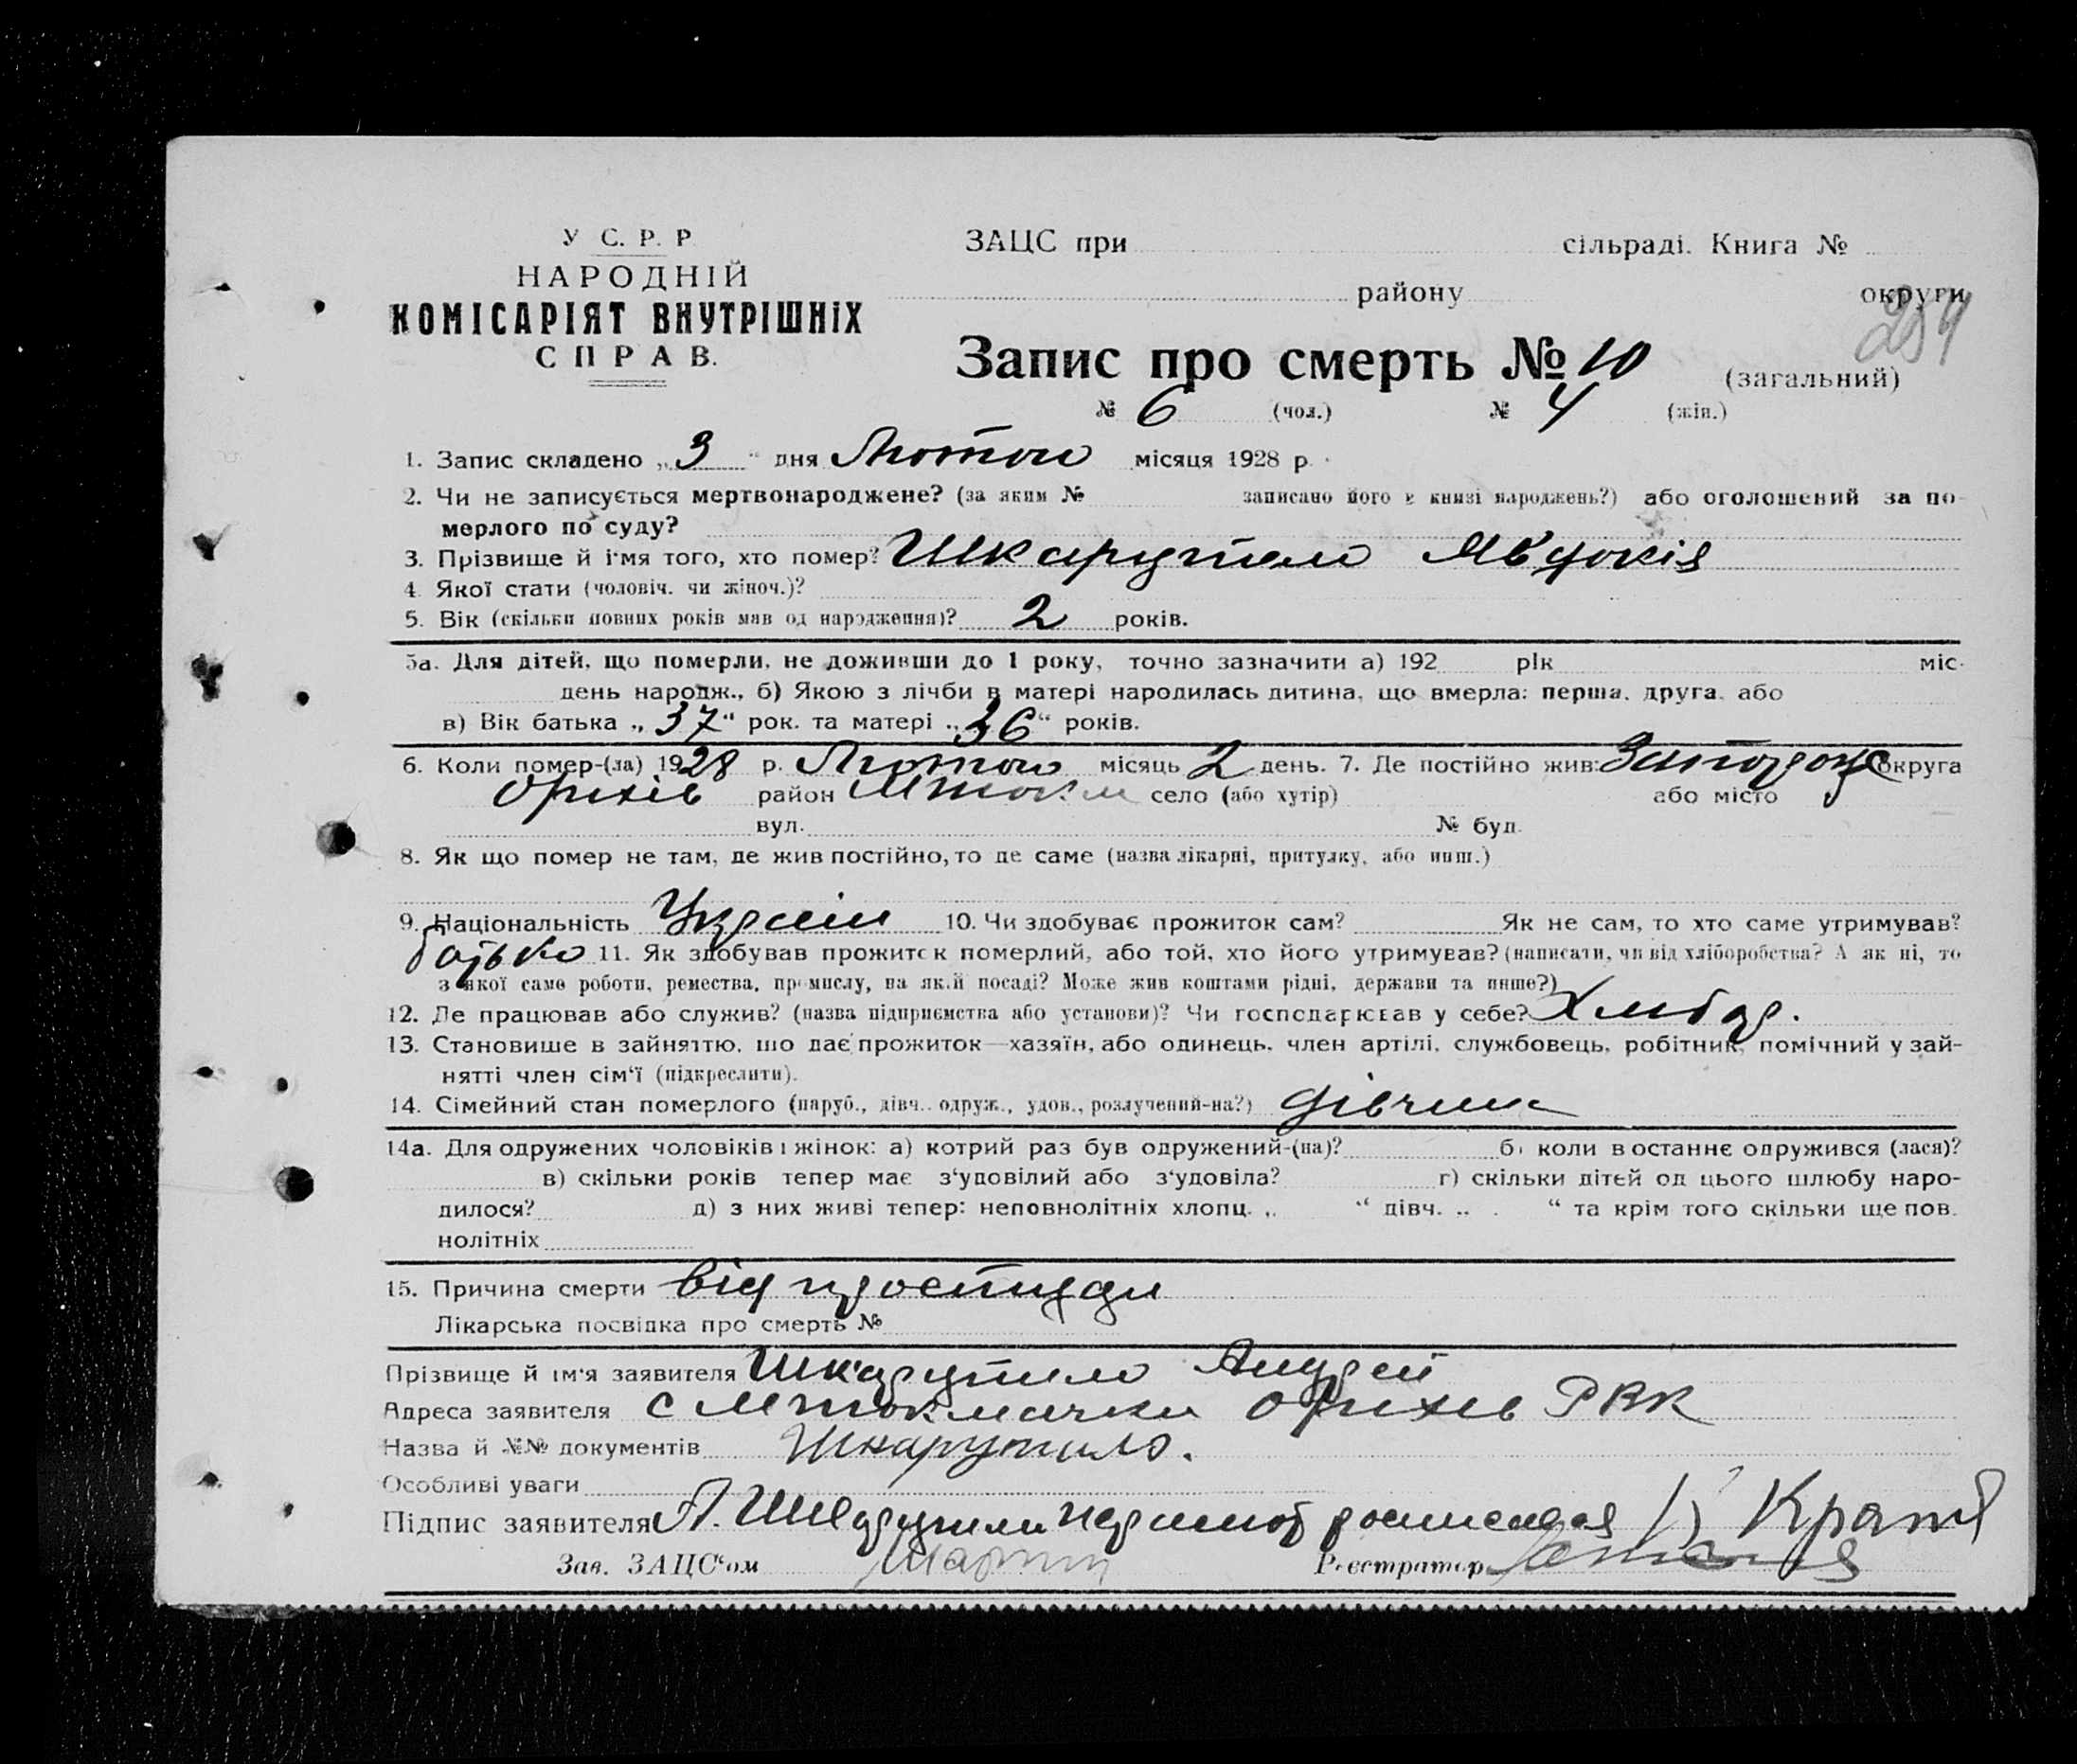 У С. Р. Р
НАРОДНІЙ
КОМІСАРІЯТ ВНУТРІШНІХ
СПРАВ.
ЗАЦС при сільраді. Книга №
району округи
254
Запис про смерть № 10 (загальний)
№ 6 (чол.) № 4 (жін.)
1. Запис складено „3“ дня Лютого місяця 1928 р.
2. Чи не записується мертвонароджене? (за яким № записано його в книзі народжень?) або оголошений за по-
мерлого по суду?
3. Прізвище й і'мя того, хто помер? Шкарупило Явдокія
4. Якої стати (чоловіч. чи жіноч.)?
5. Вік (скільки повних років мав од народження)? 2 років.
5а. Для дітей, що померли, не доживши до 1 року, точно зазначити а) 192 рік міс.
день народж., б) Якою з лічби в матері народилась дитина, що вмерла: перша, друга, або
в) Вік батька „37“ рок. та матері „36“ років.
6. Коли помер-(ла) 1928 р. Лютого місяць 2 день. 7. Де постійно жив: Запорож округа
Оріхів район МТокм село (або хутір) або місто
вул. № буд.
8. Як що помер не там, де жив постійно, то де саме (назва лікарні, притулку, або инш.)
9. Національність Україн 10. Чи здобуває прожиток сам? Як не сам, то хто саме утримував?
батько 11. Як здобував прожиток померлий, або той, хто його утримував? (написати, чи від хліборобства? А як ні, то
з якої саме роботи, ремества, промислу, на якій посаді? Може жив коштами рідні, держави та инше?)
12. Де працював або служив? (назва підприємства або установи)? Чи господарював у себе? Хлібор.
13. Становише в зайняттю, що дає прожиток—хазяїн, або одинець, член артілі, службовець, робітник, помічний у зай-
нятті член сім'ї (підкреслити).
14. Сімейний стан померлого (паруб., дівч., одруж., удов., розлучений-на?) дівчина
14а. Для одружених чоловіків і жінок: а) котрий раз був одружений-(на)? б) коли в останнє одружився (лася)?
в) скільки років тепер має з'удовілий або з'удовіла? г) скільки дітей од цього шлюбу наро-
дилося? д) з них живі тепер: неповнолітніх хлопц. „ “ дівч. „ “ та крім того скільки ще пов.
нолітніх
15. Причина смерти від простуди
Лікарська посвідка про смерть №
Прізвище й ім'я заявителя Шкарупило Андрей
Адреса заявителя с МТокмачки Оріхів РВК
Назва й №№ документів Шкарупило.
Особливі уваги
Підпис заявителя А. Шкарупило неграмот росписался
Зав. ЗАЦС'ом Реєстратор